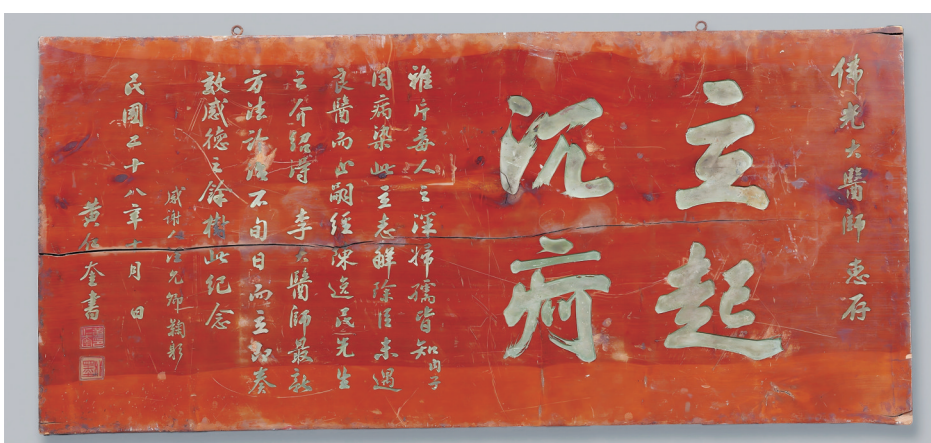 佛光大醫師 惠存
立起
沉疴
雅片毒人之深婦孺皆知內子
因病染此立志鮮除但未遇
良醫而止嗣經陳逸民先生
之介紹得 李大醫師最新
方法診治不旬日而立即奏
效感德之餘樹此紀念
感謝人汪光卿鞠躬
民國二十八年十月 日
黃仁奎書